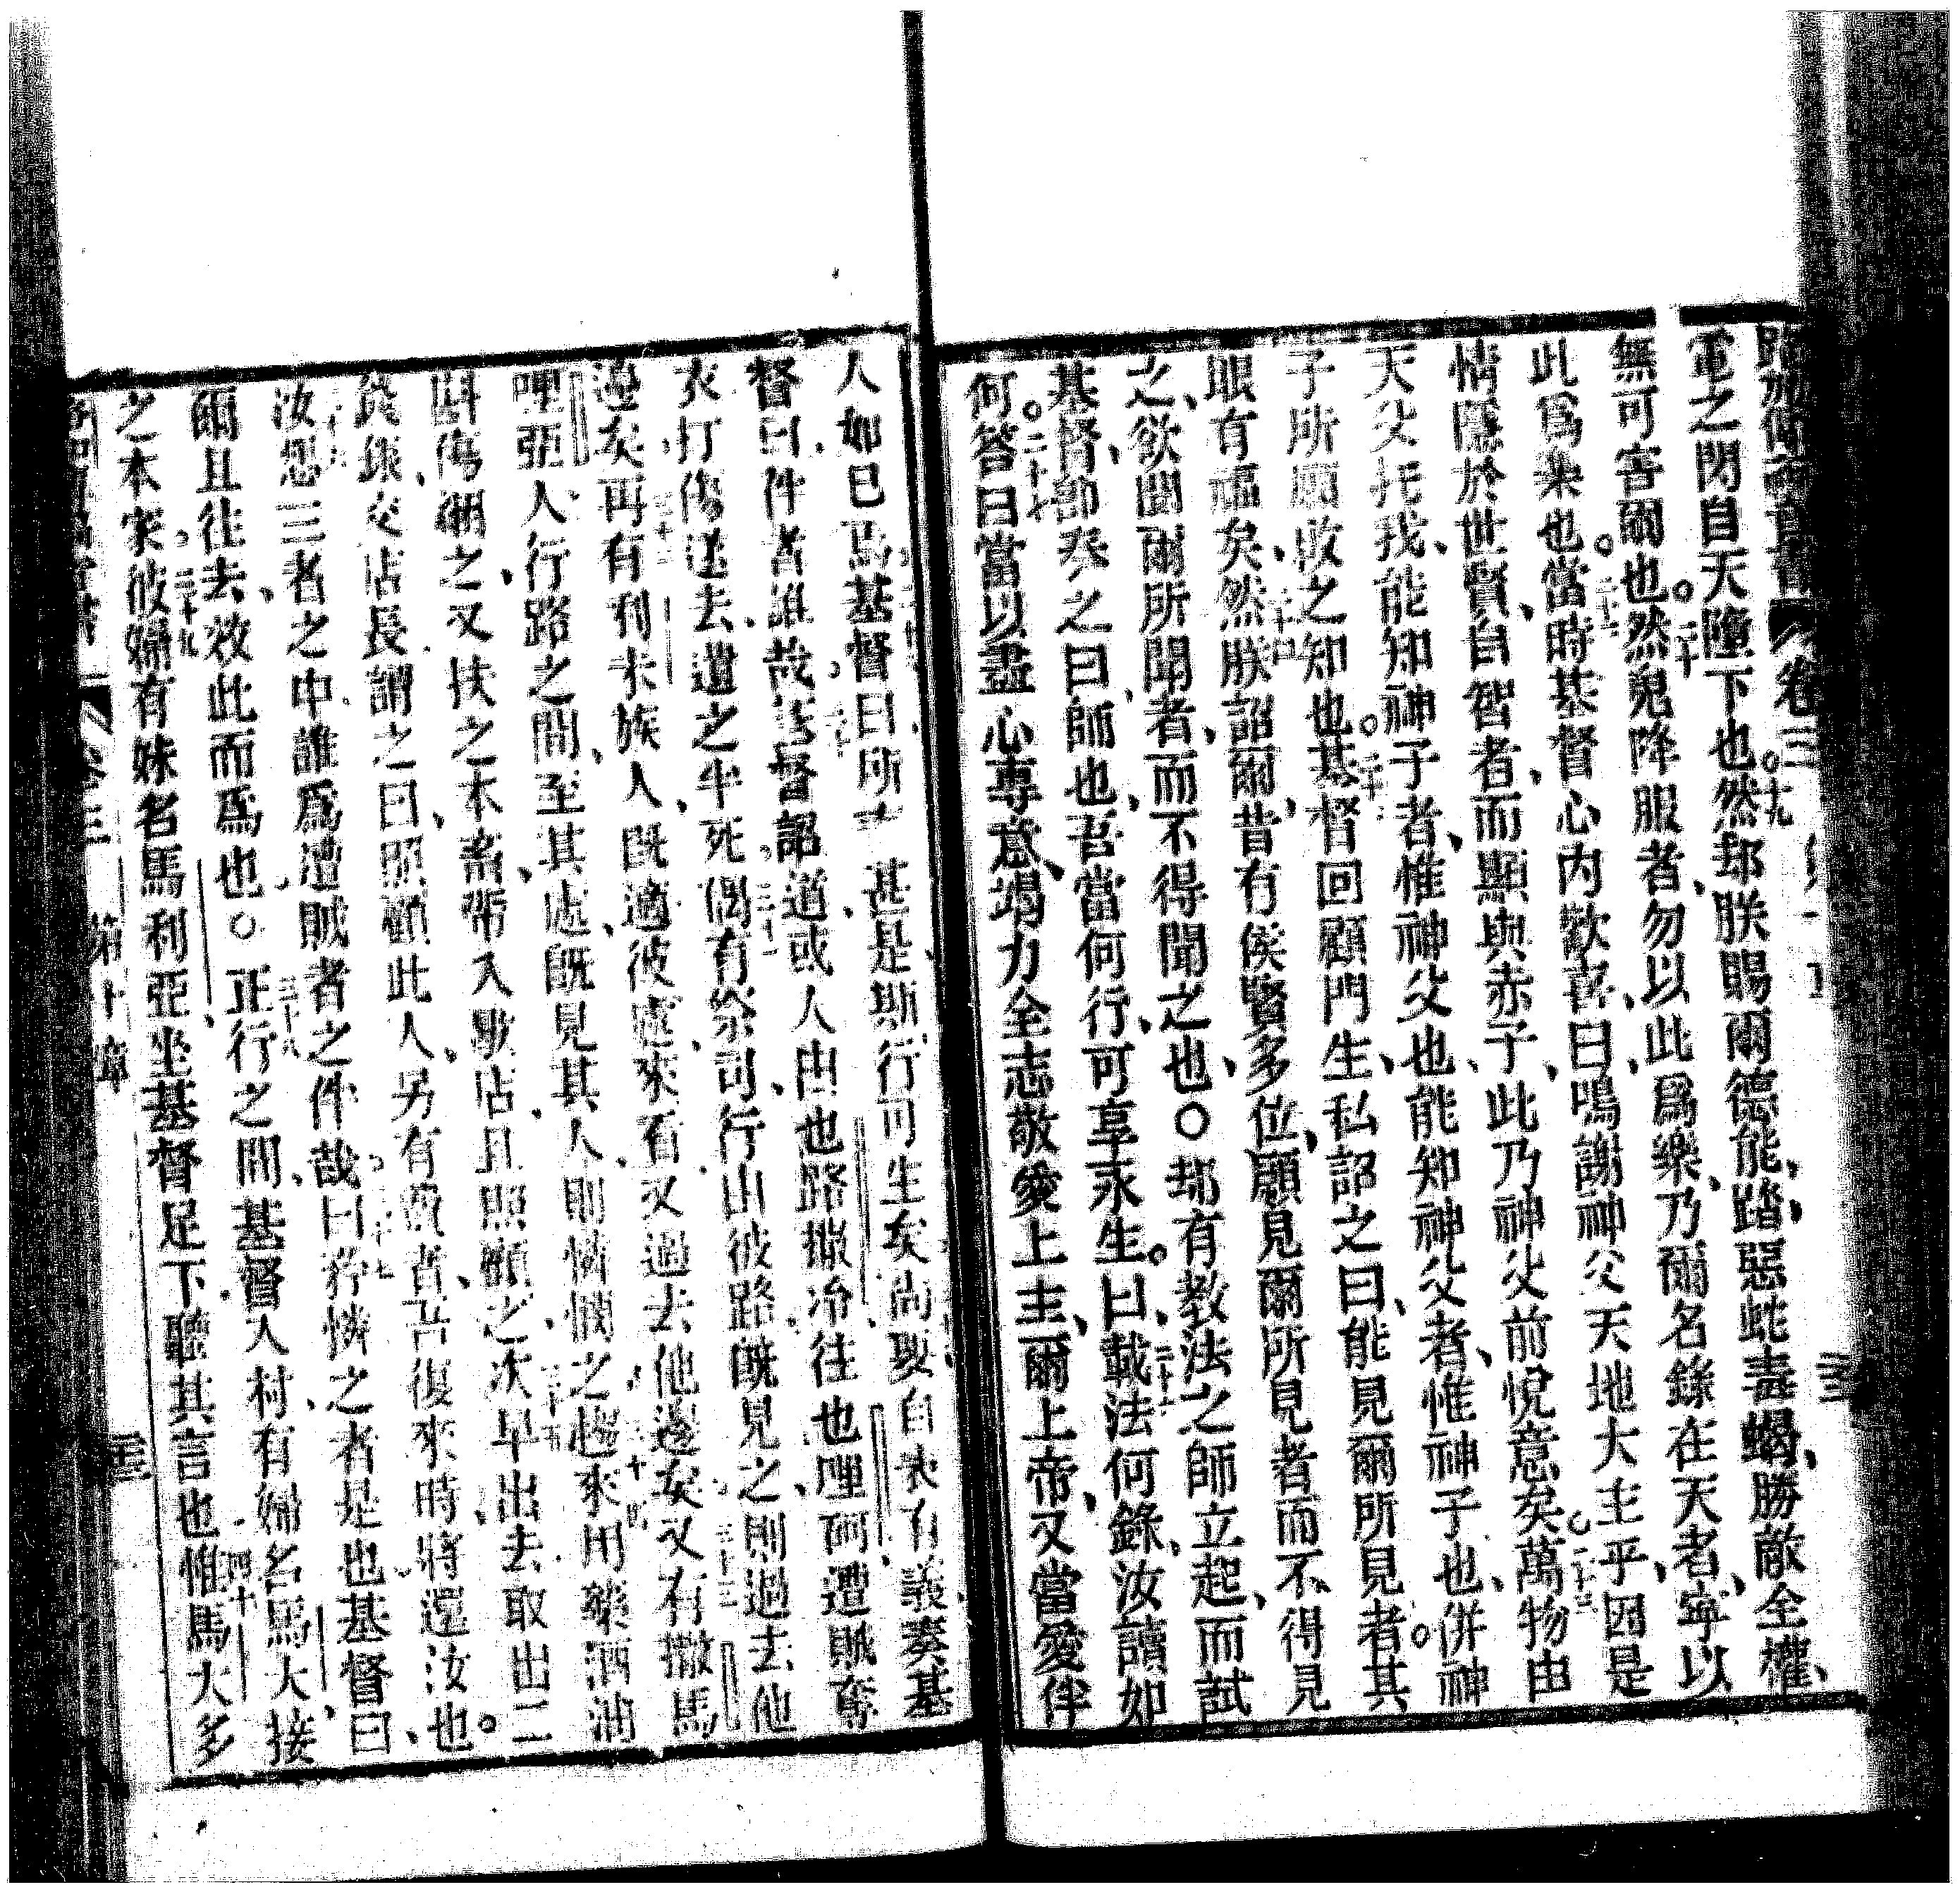 路加傳福音書 卷三
電之閃自天墮下也。十九然却朕賜爾德能、踏惡蛇毒蝎、勝敵全權、
無可害爾也。二十然鬼降服者、勿以此爲樂、乃爾名錄在天者、寧以
此爲樂也。二十一當時基督心內歡喜、曰、鳴謝神父天地大主乎、因是
情隱於世賢、自智者、而顯與赤子、此乃神父前悅意矣。二十二萬物由
天父托我、能知神子者、惟神父也、能知神父者、惟神子也、併神
子所願啟之知也。二十三基督回顧門生、私詔之曰、能見爾所見者。其
眼有福矣、二十四然朕詔爾、昔有侯賢多位、願見爾所見者而不得見
之、欲聞爾所聞者、而不得聞之也、○二十五却有教法之師立起、而試
基督、卽奏之曰、師也、吾當何行、可享永生。二十六曰、載法何錄、汝讀如
何。二十七答曰當以盡心專意、竭力全志敬愛上主、爾上帝、又當愛伴
人如己、基督曰所 甚是、斯行可生矣、尚娶自表有義奏基
督曰、伴者誰哉、基督詔道、或人由也路撒冷往也哩何遭賊奪
衣打傷送去、遺之半死、三十一偶有祭司、行出彼路、旣見之、則過去他
邊矣、三十二再有利未族人、旣適彼處、來看又過去他邊矣、三十三又有撒馬
哩亞人行路之間、至其處、旣見其人、則憐憫之、三十四趨來用藥酒油
斟傷綑之、又扶之本畜、帶入歇店、且照顧之、三十五次早出去取出二
錢銀、交店長、謂之曰、照顧此人、另有費者、吾復來時、將還汝也。
三十六汝想三者之中、誰爲遭賊者之伴哉、三十七曰、矜憐之者是也、基督曰、
爾且往去、效此而爲也○三十八正行之間、基督入村、有婦名馬大、接
之本家、三十九彼婦有妹名馬利亞、坐基督足下、聽其言也、四十惟馬大多
卷三 第十章